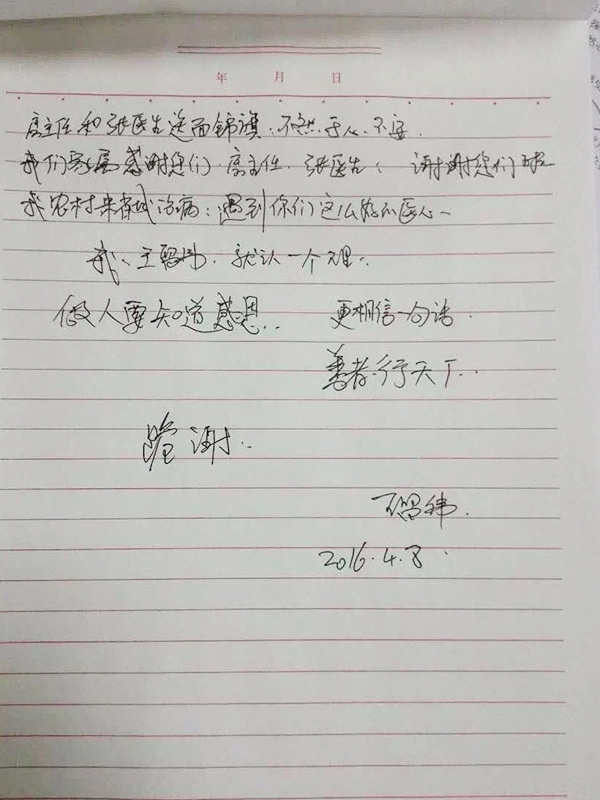 年 月 日
主任和张医生送面锦旗.不然于心不安.
我们家属感谢您们.主任.张医生. 谢谢您们
我农村来省城治病:遇到你们这么好的医人一
我、王 就认一个理..
做人要知道感恩.. 更相信一句话.
善者行天下..
谢..
2016.4.8